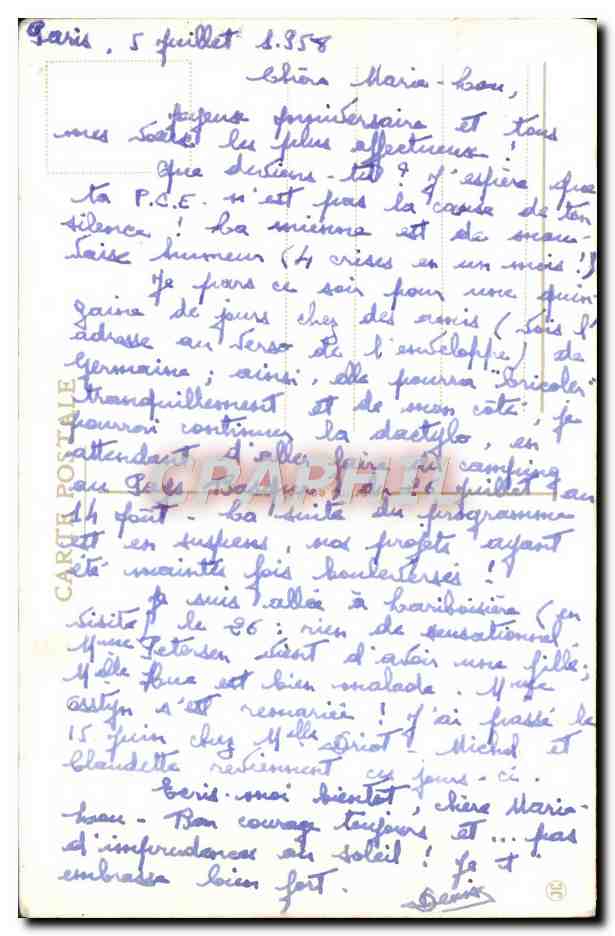 Paris, 5 juillet 1.958
Chère Maria-Lou,
Joyeux anniversaire et tous
mes voeux les plus affectueux !
Que deviens-tu ? J'espère que
ta P.C.E. n'est pas la cause de ton
silence ! La mienne est de mau-
vaise humeur (4 crises en un mois !)
Je pars ce soir pour une quin-
zaine de jours chez des amis (vois l'
adresse au verso de l'enveloppe) de
Germaine ; ainsi, elle pourra "bricoler"
tranquillement et de mon côté, je
pourrai continuer la dactylo, en
attendant d'aller faire du camping
au Pays juillet au
14 Août - La suite du programme
est en suspens, nos projets ayant
été maintes fois bouleversés !
Je suis allée à Lariboisière (en
visite) le 26 : rien de sensationnel
Mme Petersen vient d'avoir une fille ;
Melle Hue est bien malade. Mme
s'est remariée ! J'ai passé le
15 Juin chez Melle Driot - Michel et
Claudette reviennent ces jours-ci.
Ecris-moi bientôt, chère Maria-
Lou - Bon courage toujours et ... pas
d'imprudences au soleil ! Je t'
embrasse bien fort.
Denise
CARTE POSTALE
CPAPHIL
JE